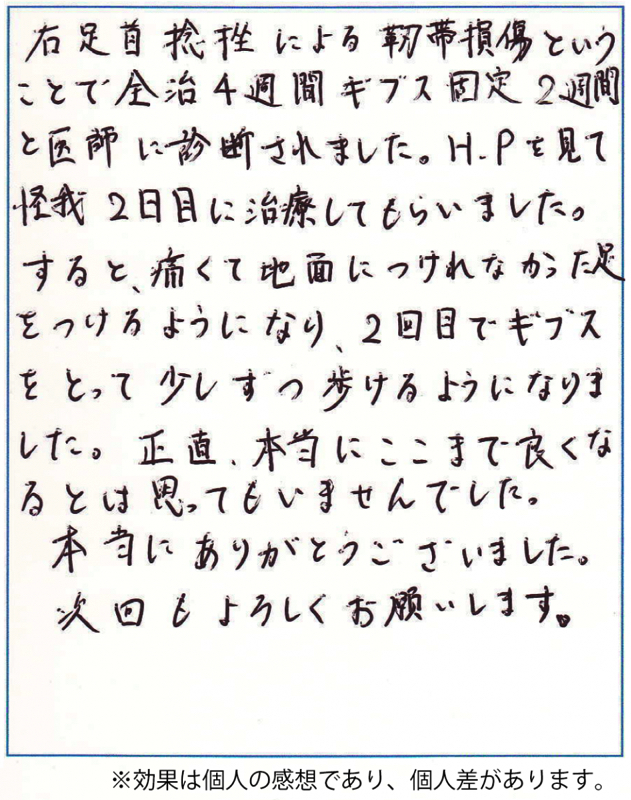 右足首捻挫による靭帯損傷という
ことで全治4週間ギブス固定2週間
と医師に診断されました。H.Pを見て
怪我2日目に治療してもらいました。
すると、痛くて地面につけれなかった足
をつけるようになり、2回目でギブス
をとって少しずつ歩けるようになりま
した。正直、本当にここまで良くな
るとは思ってもいませんでした。
本当にありがとうございました。
次回もよろしくお願いします。
※効果は個人の感想であり、個人差があります。